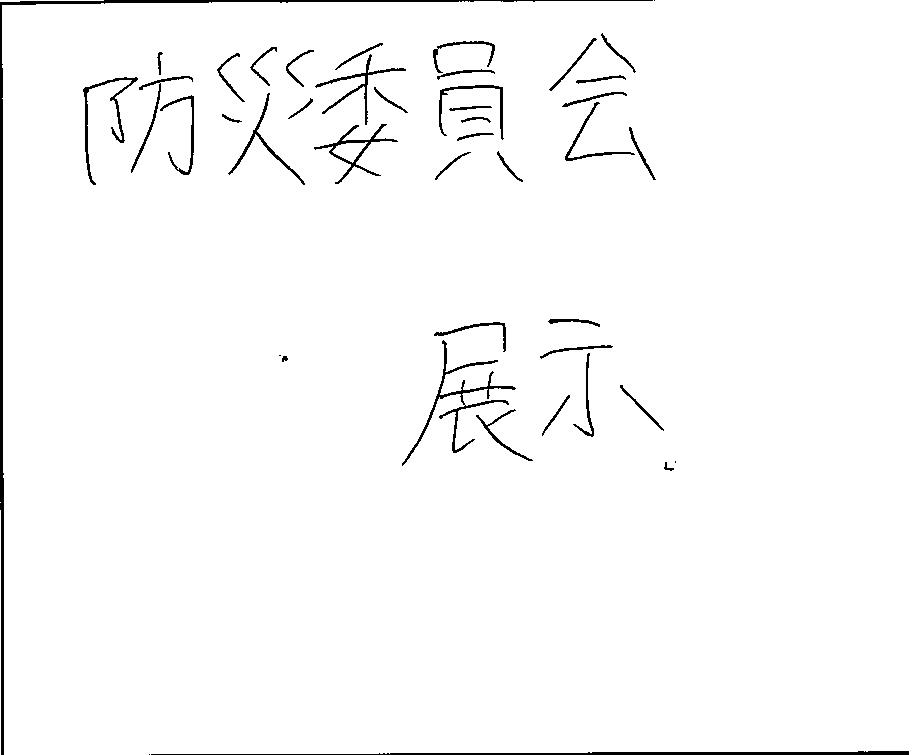 防災委員会
展示